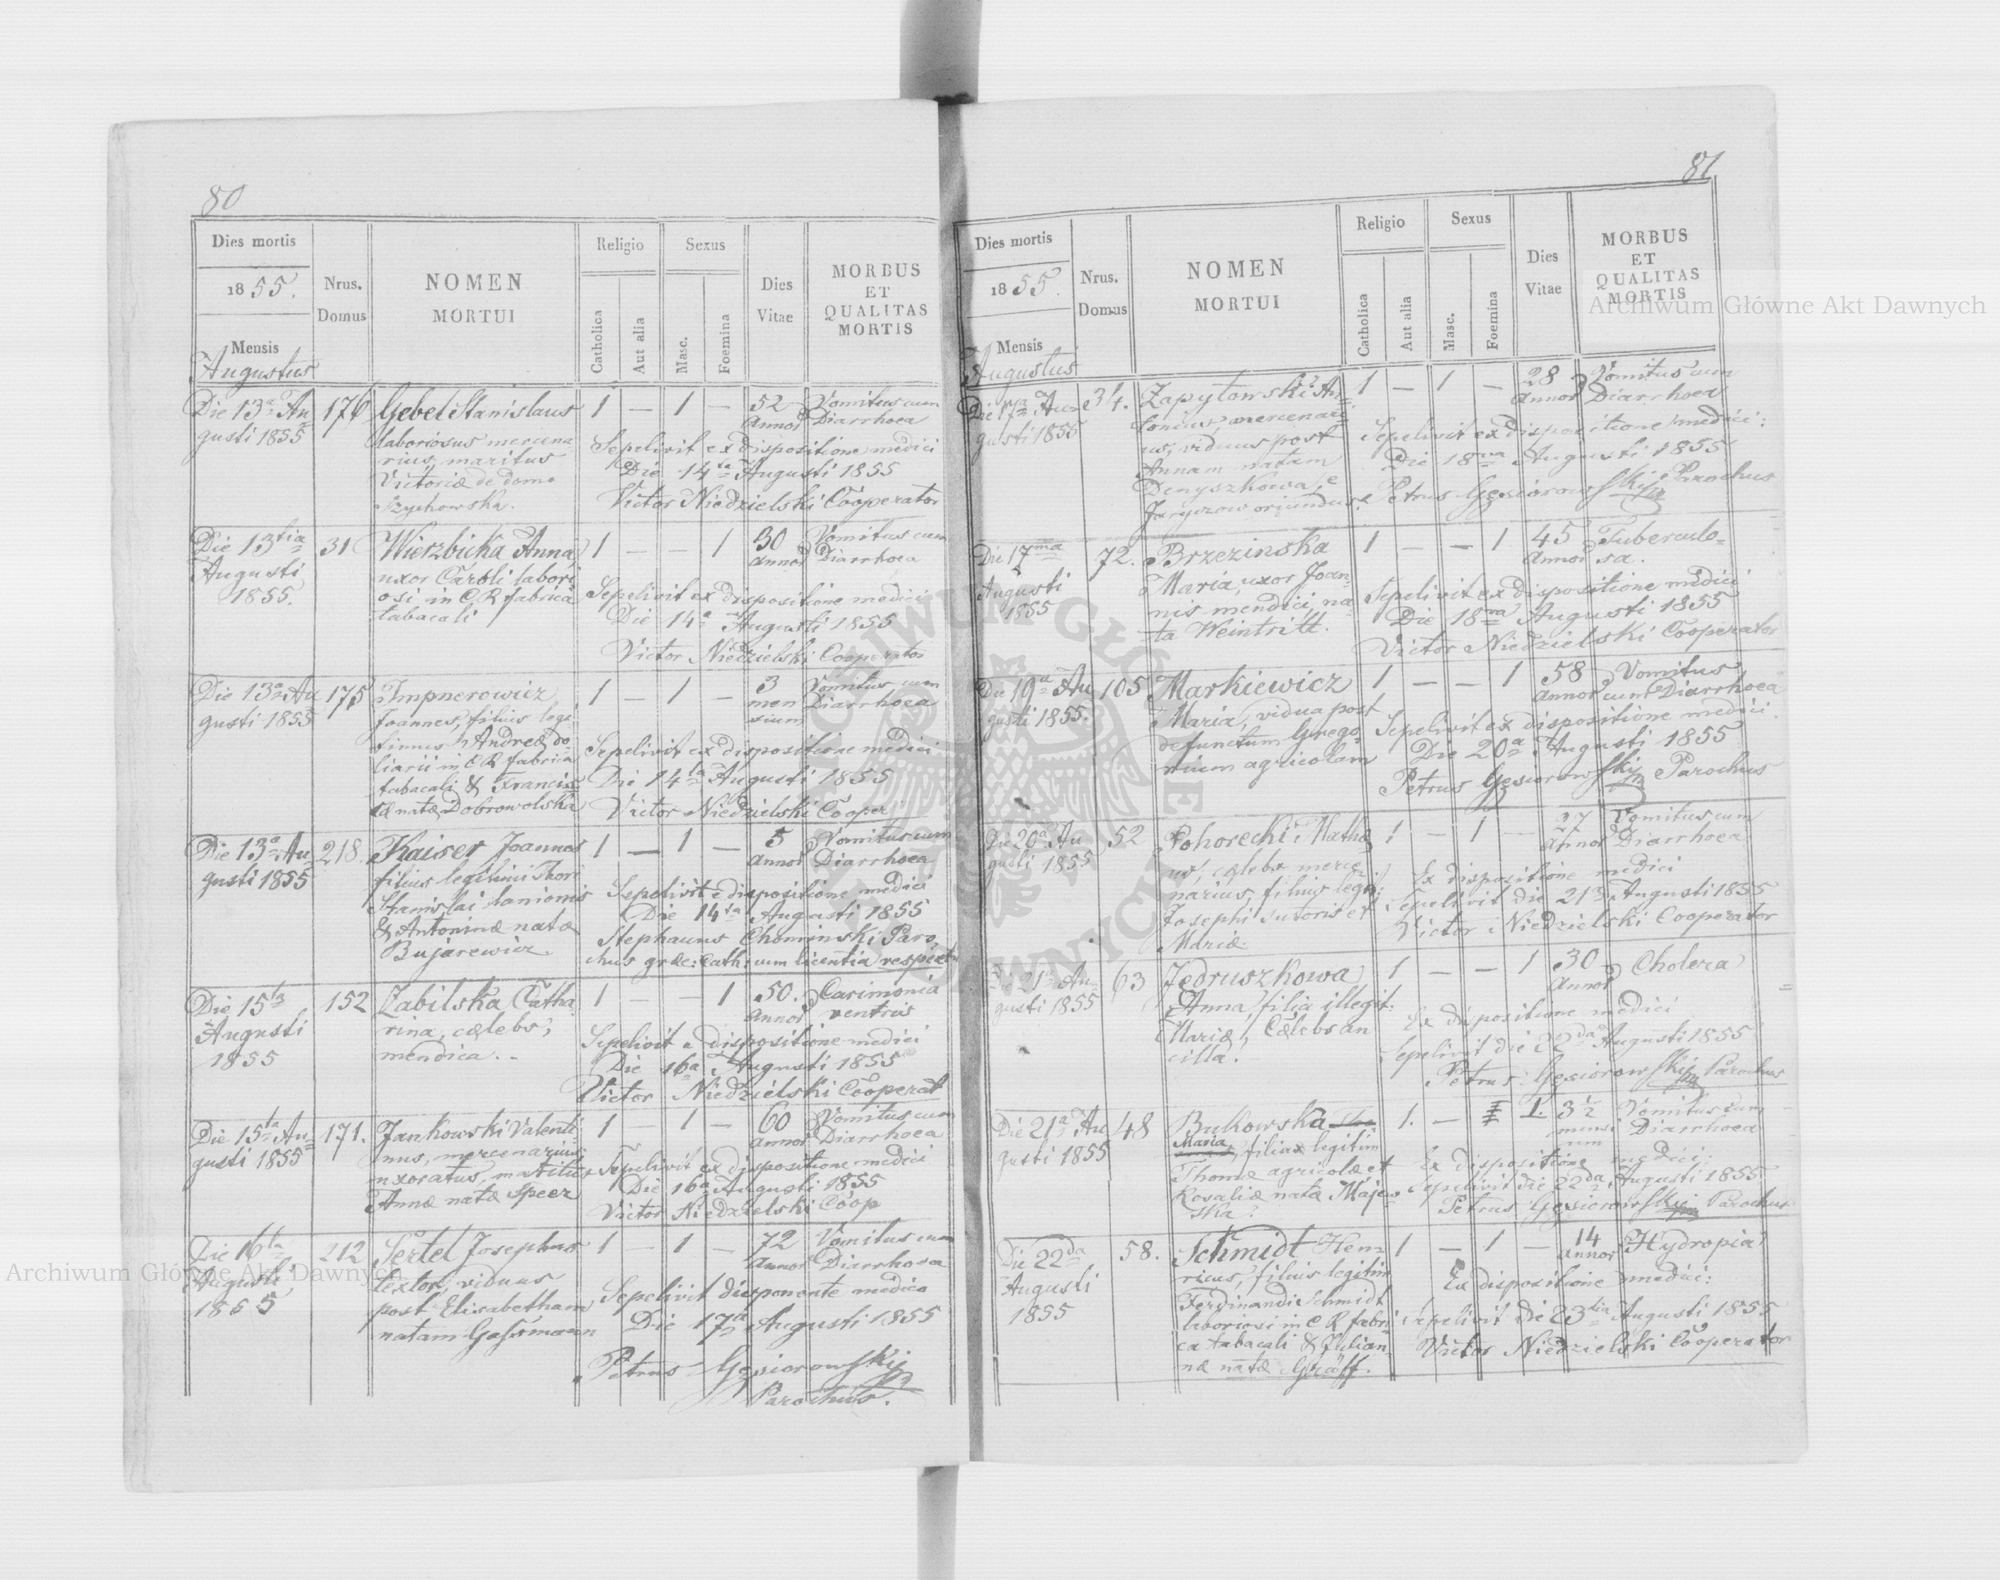 80
Dies mortis
1855.
Mensis
Augustus
Nrus.
Domus
NOMEN
MORTUI
Religio
Catholica
Aut alia
Sexus
Masc.
Foemina
Dies
Vitae
MORBUS
ET
QUALITAS
MORTIS
Die 13a Au 176 Gebel Stanislaus 1 — 1 — 52 Vomitus cum
gusti 1855 laboriosus mercena annor Diarrhoea
rius, maritus Sepelivit ex dispositione medici
Victoriæ de domo Die 14ta Augusti 1855
Szychowska. Victor Niedzielski Cooperator
Die 13tia 31 Wierzbicka Anna, 1 — — 1 30 Vomitus cum
Augusti uxor Caroli labori annor Diarrhoea
1855. osi in CR fabrica Sepelivit ex dispositione medici
tabacali Die 14a Augusti 1855
Victor Niedzielski Cooperator
Die 13a Au 175 Impnerowicz 1 — 1 — 3 Vomitus cum
gusti 1855 Joannes, filius legi men Diarrhoea
timus Andreæ do- sium
liarii in CR fabrica Sepelivit ex dispositione medici
tabacali & Francis Die 14ta Augusti 1855
cæ natæ Dobrowolska Victor Niedzielski Cooper
Die 13a Au 218. Kaiser Joannes 1 — 1 — 5 Vomitus cum
gusti 1855 filius legitimi thori annor Diarrhoea
Stanislai lanionis Sepelivit e dispositione medici
& Antoninæ natæ Die 14ta Augusti 1855
Bujarewicz Stephanus Chominski Paro
chus græc: Cath: cum licentia respect
Die 15ta 152 Zabilska Catha 1 — — 1 50. Carimonia
Augusti rina, cælebs, annor ventris
1855 mendica. Sepelivit e dispositione medici
Die 16a Augusti 1855
Victor Niedzielski Cooperat
Die 15ta Au 171. Jankowski Valenti 1 — 1 — 60 Vomitus cum
gusti 1855 nus, mercenarius annor Diarrhoea
uxoratus, maritus Sepelivit ex dispositione medici
Annæ natæ Speer Die 16a Augusti 1855
Victor Niedzielski Coop
Die 16ta 212 Sertel Josephus 1 — 1 — 72 Vomitus cum
Augusti textor, viduus annor Diarrhoea
1855 post Elisabetham Sepelivit disponente medico
natam Gassmann Die 17a Augusti 1855
Petrus Gęsiorowski
Parochus.
81
Dies mortis
1855.
Mensis
Augustus
Nrus.
Domus
NOMEN
MORTUI
Religio
Catholica
Aut alia
Sexus
Masc.
Foemina
Dies
Vitae
MORBUS
ET
QUALITAS
MORTIS
Die 17ma Au 34. Zapytowski An 1 — 1 — 28 Vomitus cum
gusti 1855 tonius mercenari annor Diarrhoea
us, viduus post Sepelivit ex dispositione medici:
Annam natam Die 18va Augusti 1855
Denyszkowa, e Petrus Gęsiorowski Parochus
Jaryczow oriundus.
Die 17ma 72. Brzezinska 1 — — 1 45 Tuberculo-
Augusti Maria, uxor Joan- annor sa.
1855 nis mendici, na- Sepelivit ex dispositione medici
ta Weintritt. Die 18va Augusti 1855
Victor Niedzielski Cooperator
Die 19a Au 105 Markiewicz 1 — — 1 58 Vomitus
gusti 1855. Maria, vidua post annor cum Diarrhoea
defunctum Grego- Sepelivit ex dispositione medici
rium agricolam Die 20a Augusti 1855
Petrus Gęsiorowski Parochus
Die 20a Au 52 Pohorecki Mathæ 1 — 1 — 37 Vomitus cum
gusti 1855 us, cælebs merce annor Diarrhoea
narius, filius legit: Ex dispositione medici
Josephi sutoris et Sepelivit die 21a Augusti 1855
Mariæ. Victor Niedzielski Cooperator
Die 21a Au 63 Jedruszkowa 1 — — 1 30 Cholera
gusti 1855 Anna, filia illegit: annor
Mariæ, Cælebs an Ex dispositione medici
cilla. Sepelivit die 22da Augusti 1855
Petrus Gęsiorowski Parochus
Die 21a Au 48 Bukowska 1. — 1. 3½ Vomitus cum
gusti 1855 Maria, filia legitim mensi Diarrhoea
um
Thomæ agricolæ et Ex dispositione medici:
Rosaliæ natæ Majew Sepelivit die 22da Augusti 1855
ska. Petrus Gęsiorowski Parochus
Die 22da 58. Schmidt Hen- 1 — 1 — 14 Hydropia
Augusti ricus, filius legitim annor
1855 Ferdinandi Schmidt Ex dispositione medici:
laboriosi in CR fabri Sepelivit die 23tia Augusti 1855
ca tabacali & Julian- Victor Niedzielski Cooperator
næ natæ Gräff.
Archiwum Główne Akt Dawnych
Archiwum Główne Akt Dawnych
ARCHIWUM GŁÓWNE AKT DAWNYCH